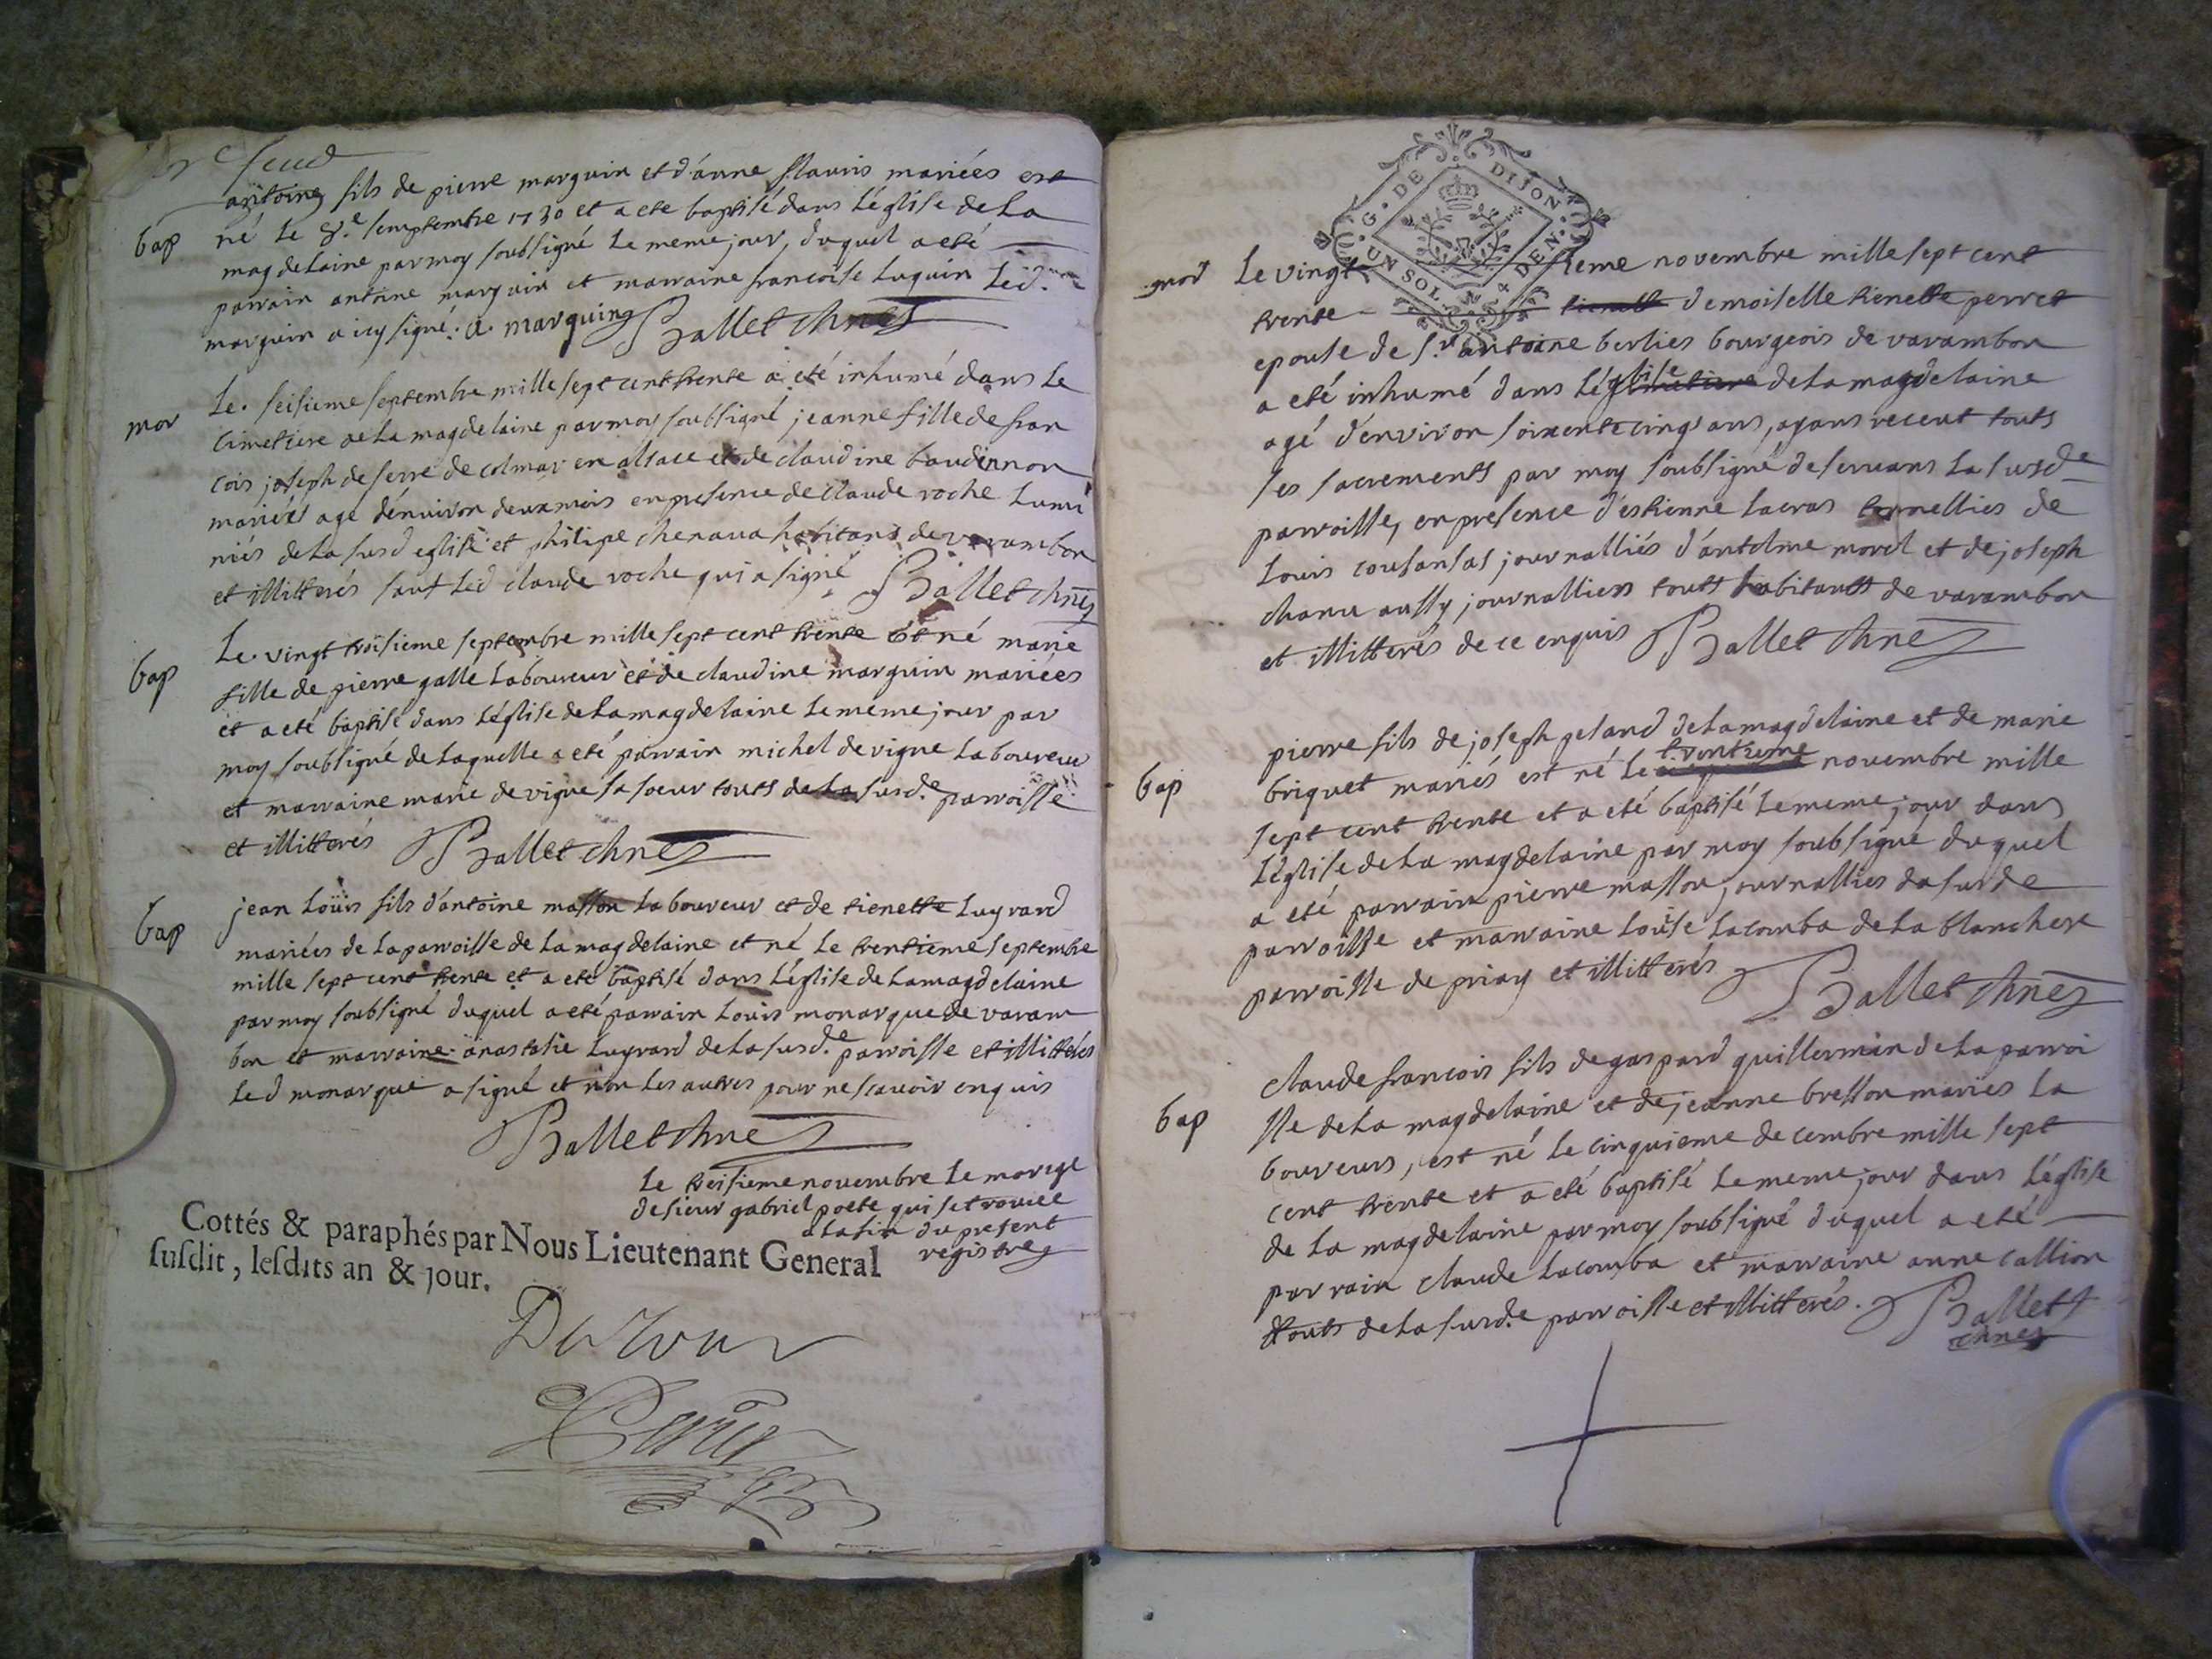 antoine fils de pierre marguin et d'anne flauris mariées est
bap né le 8.e semptembre 1730 et a eté baptisé dans l'église de la
magdelaine par moy soubsigné le meme jour, duquel a eté
parrain antoine marguin et marraine francoise luguin led.
marguin a icy signé. a. marguin Ballet chnes
mor Le seisieme septembre mille sept cent trente a eté inhumé dans le
cimetiere de la magdelaine par moy soubsigné jeanne fille de fran
cois joseph de serre de colmar en alsace et de claudine baudinnon
mariés agé d'enuiron deux mois en presence de claude roche lumi
niés de la susd eglise et philipe chenaua habitans de varambon
et illitterés sauf led claude roche qui a signé Ballet chnes
bap Le vingt troisieme septembre mille sept cent trente et né marie
fille de pierre galle laboureur et de claudine marguin mariées
et a eté baptisé dans l'église de la magdelaine le meme jour par
moy soubsigné de laquelle a eté parrain michel de vigne laboureur
et marraine marie de vigne sa soeur touts de la susd.e parroisse
et illitterés Ballet chnes
bap jean louis fils d'antoine masson laboureur et de tienette luyrard
mariées de la parroisse de la magdelaine et né le trentieme septembre
mille sept cent trente et a eté baptisé dans l'église de la magdelaine
par moy soubsigné duquel a eté parrain louis monarque de varam
bon et marraine anastasie luyrard de la susd.e parroisse et illitterés
led monarque a signé et non les autres pour ne scavoir enquis
Ballet chnes
le treisieme novembre le mariage
de sieur gabriel poete qui se trouve
a la fin du present
registre
Cottés & paraphés par Nous Lieutenant General
susdit, lesdits an & jour.
G. DE DIJON.
UN SOL. 4 DEN.
mor Le vingt ieme novembre mille sept cent
trente demoiselle tienette perret
epouse de s.r antoine berlies bourgeois de varambon
a eté inhumé dans l'église de la magdelaine
agé d'environ soixente cinq ans, ayans receut touts
ses sacrements par moy soubsigné deseruans la susd.e
parroisse, en presence d'estienne lacras tonnellies de
louis cousansas journalliés d'antelme morel et de joseph
chanu aussy journalliers touts habitants de varambon
et illitterés de ce enquis Ballet chnes
pierre fils de joseph geland de la magdelaine et de marie
bap briquet mariés est né le trentieme novembre mille
sept cent trente et a eté baptisé le meme jour dans
l'église de la magdelaine par moy soubsigné duquel
a eté parrain pierre masson journallies da susd.e
parroisse et marraine louise lacomba de la blanchere
parroisse de priay et illitterés Ballet chnes
claude francois fils de gaspard guillermin de la parroi
bap sse de la magdelaine et de jeanne bresson mariés la
boureurs, est né le cinquieme decembre mille sept
cent trente et a eté baptisé le meme jour dans l'église
de la magdelaine par moy soubsigné duquel a eté
parrain claude lacomba et marraine anne callion
touts de la susd.e parroisse et illitterés. Ballet
chnes